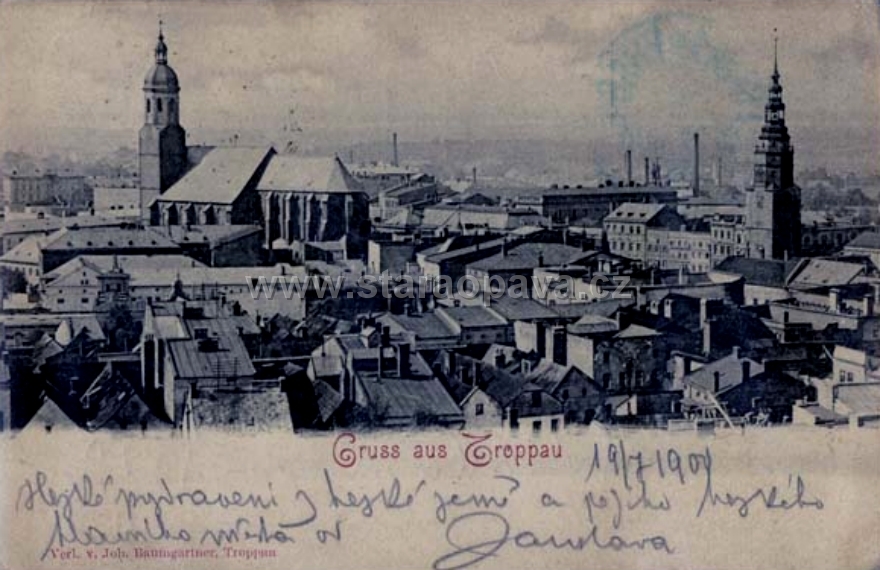 www.staraopava.cz
Gruss aus Troppau
19/7 1901
Hezké pozdravení z hezké země a jejího hezkého
hlavního města od Jaroslava
Verl. v. Joh. Baumgartner, Troppau